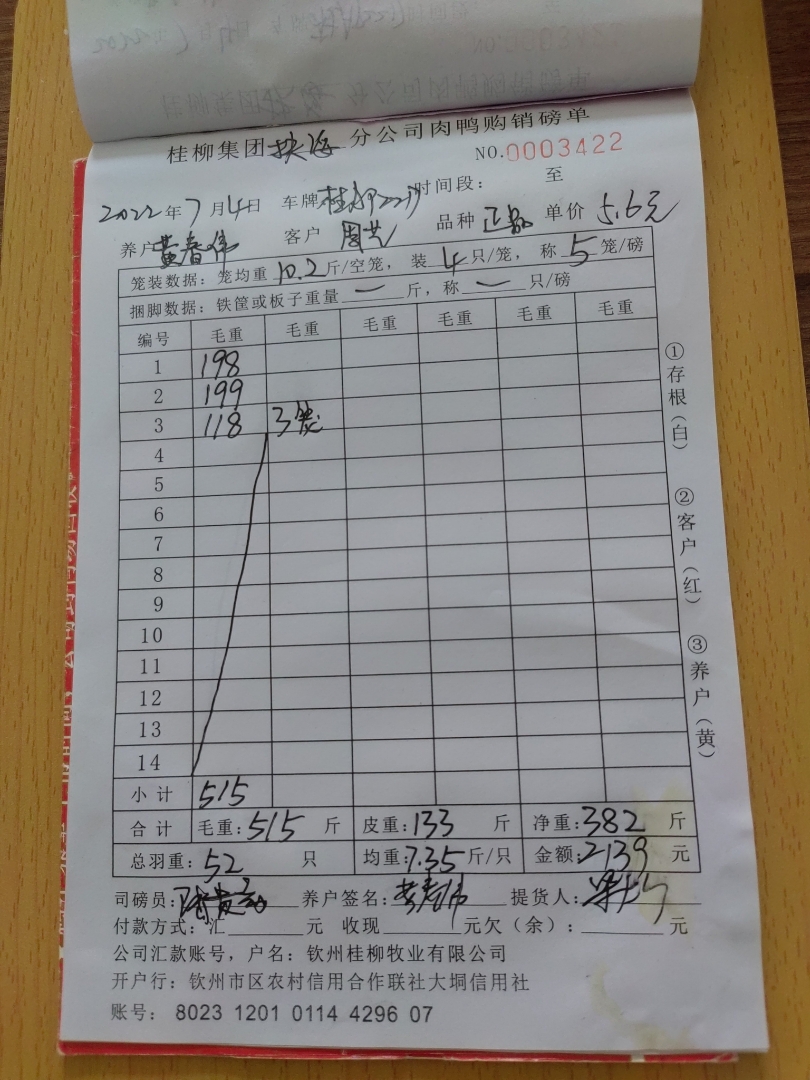 桂柳集团 分公司肉鸭购销磅单
NO.0003422
2022年7月4日 车牌 桂柳22 时间段： 至
养户 黄春伟 客户 周艺 品种 正品 单价 5.6元
笼装数据：笼均重 10.2 斤/空笼，装 4 只/笼，称 5 笼/磅
捆脚数据：铁筐或板子重量 — 斤，称 — 只/磅
编号 毛重 毛重 毛重 毛重 毛重 毛重
1 198
2 199
3 118 3笼
4
5
6
7
8
9
10
11
12
13
14
小计 515
合计 毛重:515 斤 皮重:133 斤 净重:382 斤
总羽重:52 只 均重:7.35斤/只 金额:2139 元
司磅员: 养户签名: 提货人:
付款方式:汇 元 收现 元欠（余）: 元
公司汇款账号，户名：钦州桂柳牧业有限公司
开户行：钦州市区农村信用合作联社大垌信用社
账号： 8023 1201 0114 4296 07
①存根（白）
②客户（红）
③养户（黄）